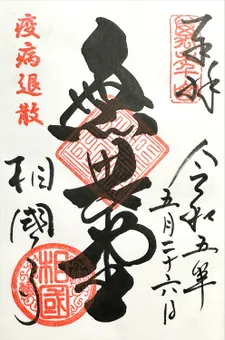 奉拝
令和五年
五月二十六日
無畏堂
疫病退散
相國寺
相國